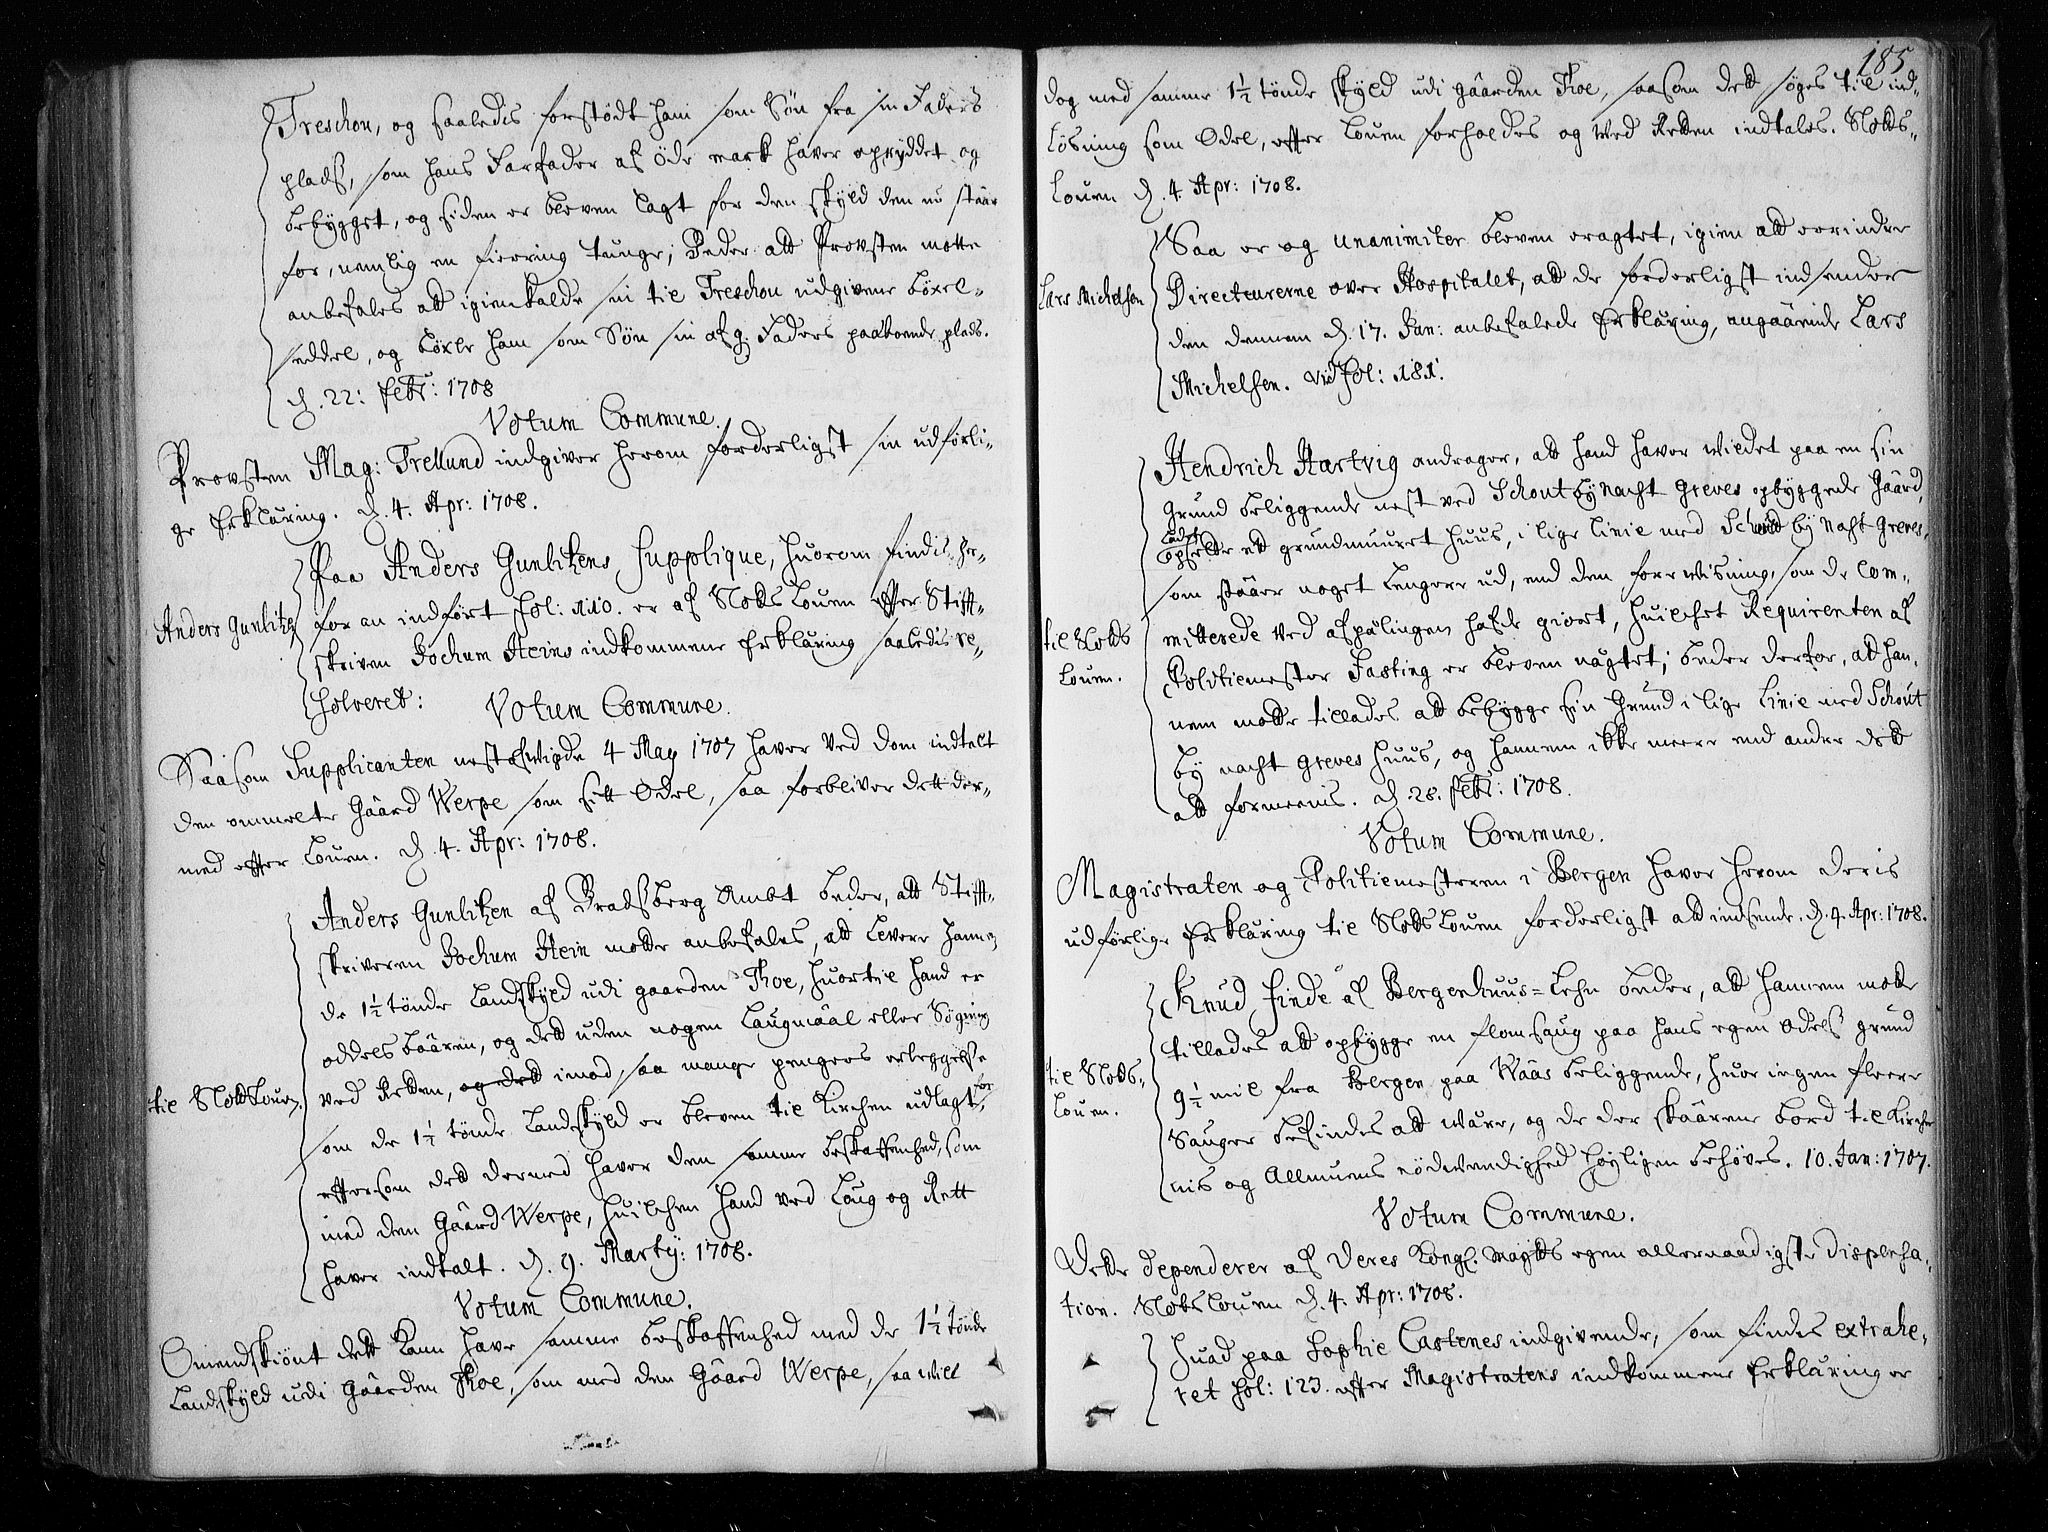 Treschou, og saaledis forstødt ham som Søn fra sin Faders
plads, som hans Farfader af öde mark haver opryddet og
bebygget, og siden er bleven lagt for den skyld den nu staar
for, nemlig en fierring tunge; Beder att Provsten motte
anbefales att igienkalde sin til Treschou udgivene böxel-
seddel, og böxle ham som Søn sin afg. Faders paaboende plads.
d. 22: Febr: 1708
Votum Commune.
Provsten Mag: Trellund indgiver herom forderligst sin udførli-
ge Erklæring. d. 4. Apr: 1708.
Anders Gunlitz
Paa Anders Gunlitzens Supplique, huorom findis her-
for an indført fol: 110. er af Slotts Louen efter Stifft-
skriven Jochum Heins indkommene Erklæring saaledis re-
solveret:
Votum Commune.
Saasom Supplicanten nestafvigde 4 May 1707 haver ved dom indtalt
den ommelte Gaard Werpe som sitt Odel, saa forbliver dett der-
med efter Louen. d. 4. Apr: 1708.
til Slotts Louen.
Anders Gunlitzen af Bradsberg Ambt beder, att Stifft-
skriveren Jochum Hein motte anbefales, att levere hannem
de 1½ tønde Landskyld udi gaarden Thoe, huortil hand er
oddels baaren, og dett uden nogen Laugmaal eller Søgning
ved Retten, og dett imod saa mange pengers erleggelse
som de 1½ tønde Landskyld er bleven til Kirchen udlagt for,
eftersom dett dermed haver den samme beskaffenhed, som
med den Gaard Werpe, huilchen hand ved Laug og Rett
haver indtalt. d. 9. Martÿ: 1708.
Votum Commune.
Omendskiönt dett kand have samme beskaffenhed med de 1½ tönde
Landskyld udi Gaarden Thoe, som med den Gaard Werpe, saa will
185
dog med samme 1½ tönde skyld udi gaarden Thoe, saasom dett søges til ind-
løsning som Odel, efter Louen forholdes og ved Retten indtales. Slotts-
Louen d. 4. Apr: 1708.
Lars Michelsen
Saa er og unanimiter bleven eragtet, igien att erindre
Directeurerne over Hospitalet, att de forderligst indsender
den dennem d. 17. Jan: anbefalede Erklæring, angaaende Lars
Michelsen. vid fol: 181.
til Slotts
Louen.
Hendrich Hartvig andrager, att hand haver wildet paa en sin
grund beliggende nest ved Schoutbynacht Greves opbyggede Gaard,
ladet
opsette ett grundmuuret huus, i lige linie med Schout by nacht Greves,
som staar noget lengere ud, end den forewisning, som de Com-
mitterede ved afpælingen hafde giort, huilchet Requirenten af
Politiemester Fasting er bleven nægtet; beder derfor, att han-
nem motte tillades att bebygge sin Grund i lige Linie med Schout
by nacht Greves huus, og hannem ikke meere end andre dett
att formeenis. d. 28. Febr: 1708.
Votum Commune.
Magistraten og Politiemesteren i Bergen haver herom deris
udførlige Erklæring til Slotts Louen forderligst att indsende. d. 4. Apr: 1708.
til Slotts-
Louen.
Knud Finde af Bergenhuus=Lehn beder, att hannem motte
tillades att opbygge en flomsaug paa hans egen odels grund
9½ mil fra Bergen paa Waas beliggende, huor ingen fleere
Sauger befindes att wære, og de der skaarene bord til Kirche-
nis og Allmuens nødwendighed høyligen behøves. 10. Jan: 1707.
Votum Commune.
Dette dependerer af Deres Kongl. Maytts egen allernaadigste Dispensa-
tion. Slotts Louen d. 4. Apr: 1708.
Huad paa Sophie Castenes indgivende, som findes extrahe-
ret fol: 123. efter Magistratens indkommene Erklæring er